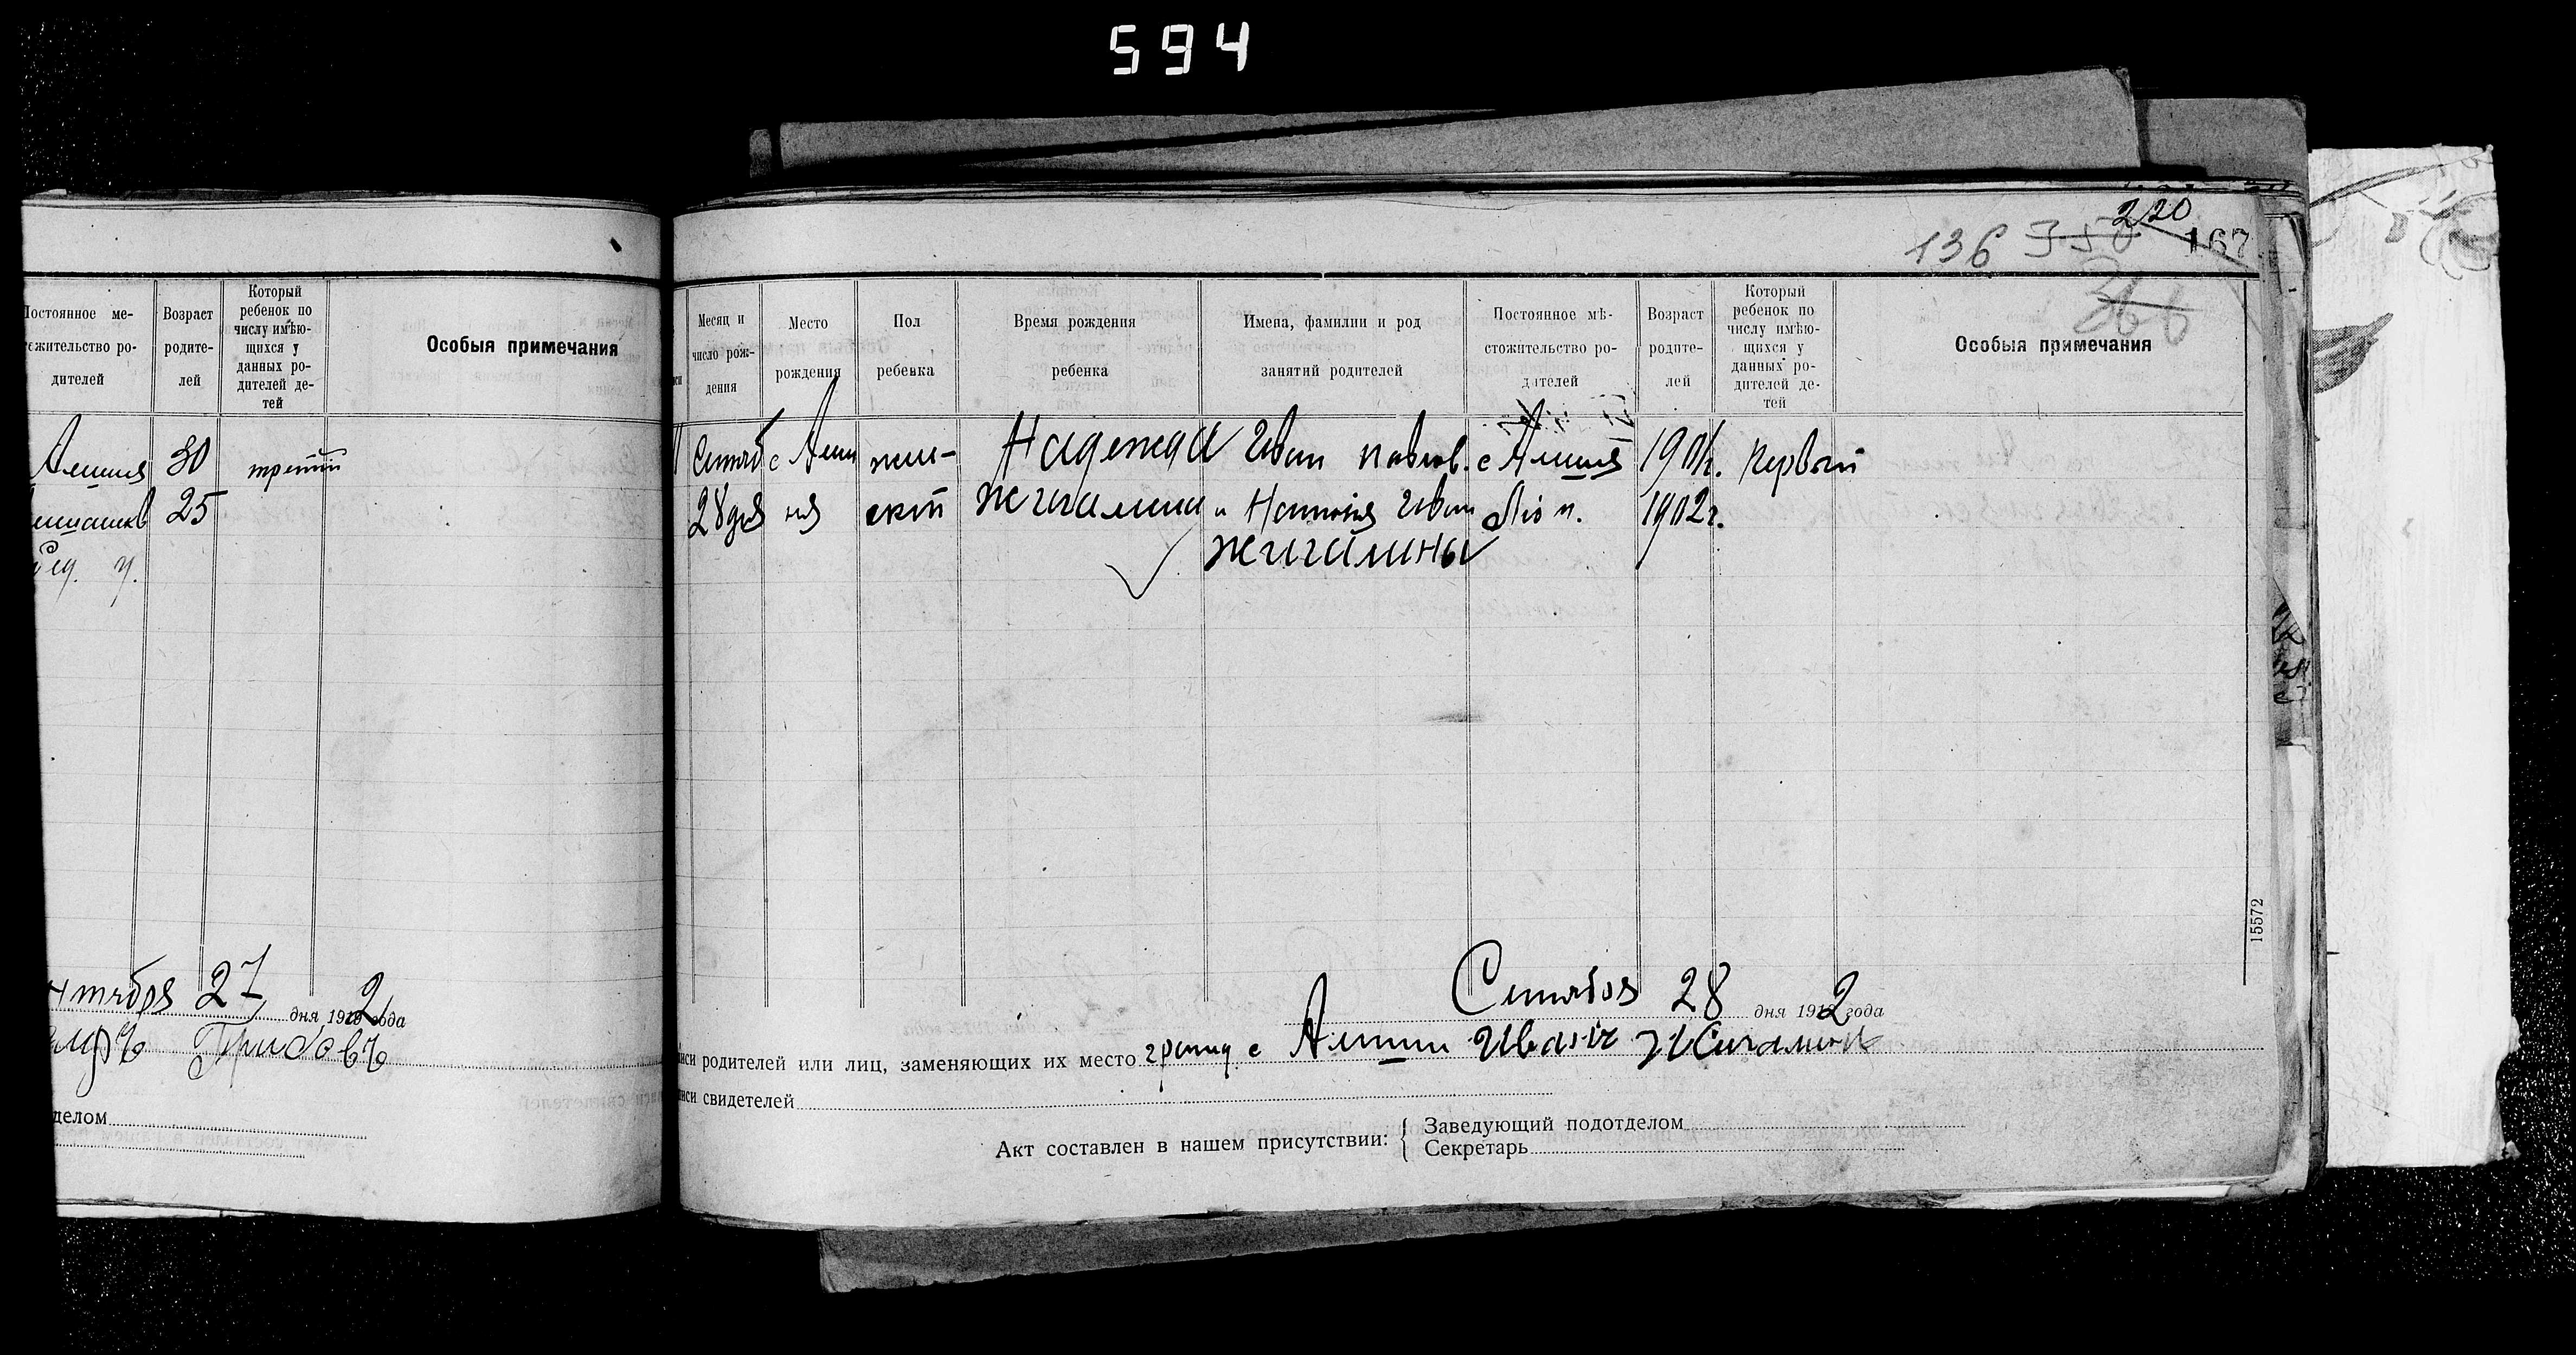 594
Постоянное ме-
стожительство ро-
дителей
Возраст
родите-
лей
Который
ребенок по
числу имѣю-
щихся у
данных ро-
дителей де-
тей
Особыя примечания
30
третий
25
27 дня 1922 года
делом
220
136 350 167
366
Месяц и
число рож-
дения
Место
рождения
Пол
ребенка
Время рождения
ребенка
Имена, фамилии и род
занятий родителей
Постоянное мѣ-
стожительство ро-
дителей
Возраст
родите-
лей
Который
ребенок по
числу имѣю-
щихся у
данных ро-
дителей де-
тей
Особыя примечания
Сентяб
28 дня
жен-
ский
Надежда
Жигалина
Иван Павлов.
и Наталия Иван
Жигалины
1901г.
1902г.
Первый
15572
Сентября 28 дня 1922 года
писи родителей или лиц, заменяющих их место гражд. с Иванъ Жигалинъ
писи свидетелей
Акт составлен в нашем присутствии:
Заведующий подотделом
Секретарь